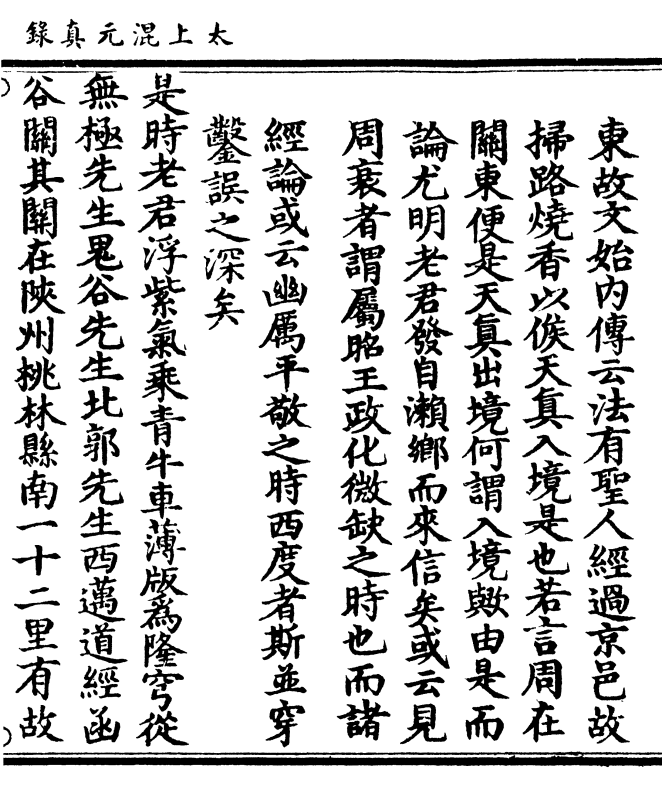 太上混元真錄
東故文始内傳云法有聖人經過京邑故
掃路燒香以俟天真入境是也若言周在
關東便是天真出境何謂入境歟由是而
論尤明老君發自瀨鄉而來信矣或云見
周衰者謂屬昭王政化微缺之時也而諸
經論或云幽厲平敬之時西度者斯並穿
鑿誤之深矣
是時老君浮紫氣乘青牛車薄版爲隆穹從
無極先生鬼谷先生北郭先生西邁道經函
谷關其關在陝州桃林縣南一十二里有故